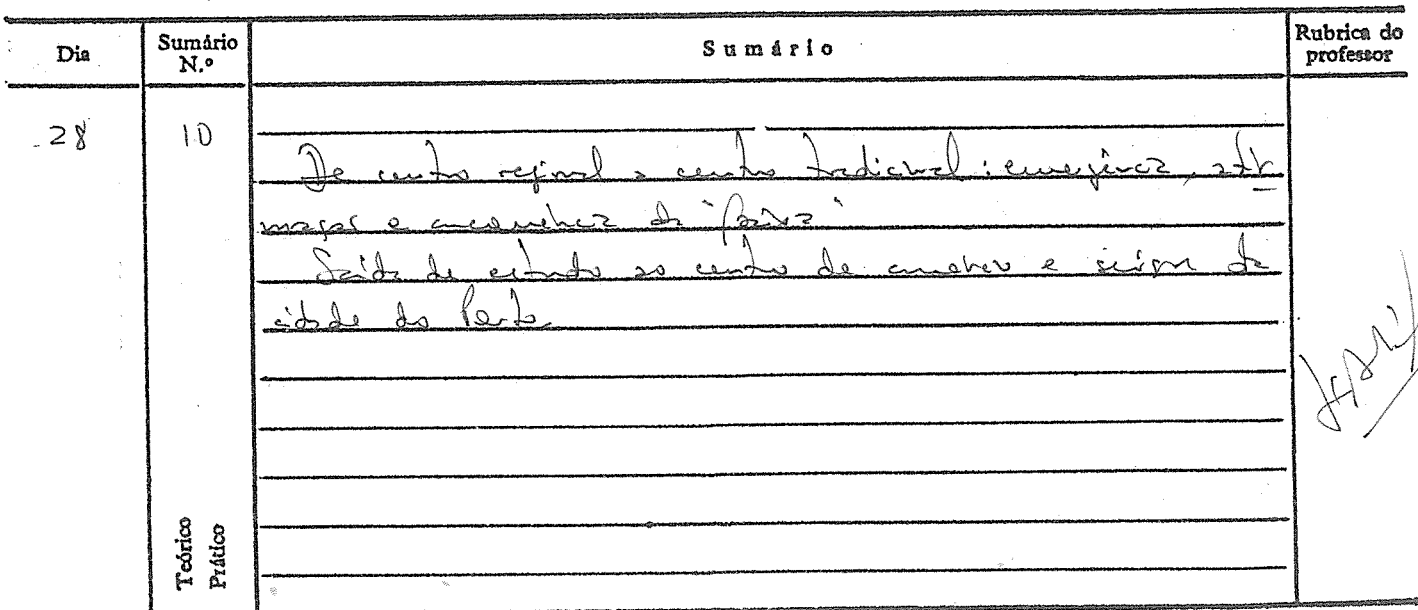 Dia
Sumário N.º
Sumário
Rubrica do professor
28
10
De centro regional a centro tradicional : emergência, afir
mação e da "Baixa"
Saída de estudo ao centro de comércio e serviços da
cidade do Porto
Teórico
Prático